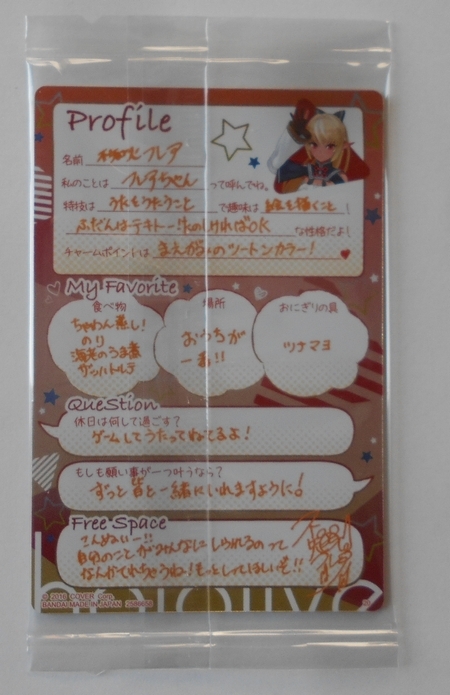 Profile
名前 不知火フレア
私のことは フレアちゃん って呼んでね。
特技は うたをうたうこと で趣味は 絵を描くこと !
ふだんはテキトー!たのしければOK な性格だよ!
チャームポイントは まえがみのツートンカラー!
My Favorite
食べ物
ちゃわん蒸し!
のり
海老のうま煮
ザッハトルテ
場所
おうちが
一番!!
おにぎりの具
ツナマヨ
QueStion
休日は何して過ごす?
ゲームしてうたってねてるよ!
もしも願い事が一つ叶うなら?
ずっと皆と一緒にいれますように!
Free Space
こんぬいー!!
自分のこと
しられるのって
なんかてれちゃうね!もっとしってほしいぞ!!
hololive
© 2016 COVER Corp.
BANDAI MADE IN JAPAN